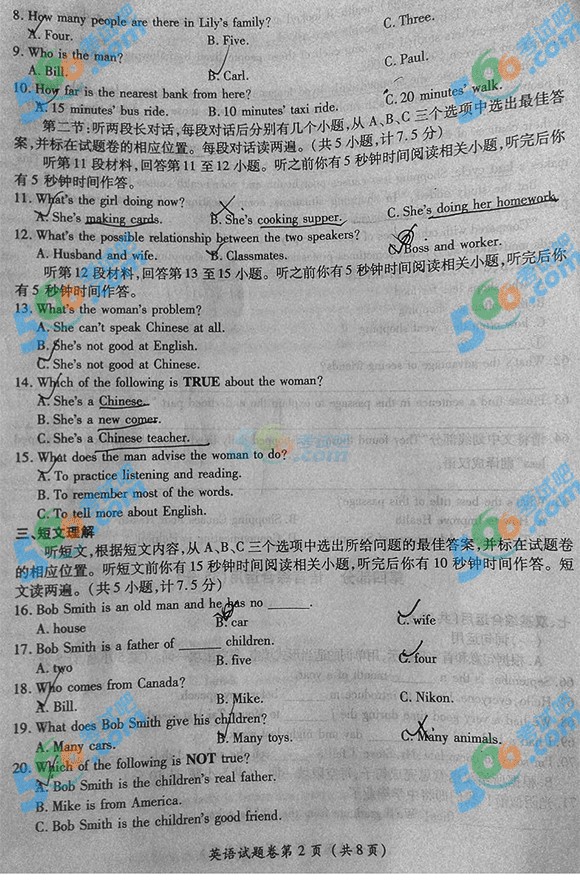 8. How many people are there in Lily's family?
A. Four. B. Five. C. Three.
9. Who is the man?
A. Bill. B. Carl. C. Paul.
10. How far is the nearest bank from here?
A. 15 minutes' bus ride. B. 10 minutes' taxi ride. C. 20 minutes' walk.
第二节:听两段长对话,每段对话后分别有几个小题,从 A、B、C 三个选项中选出最佳答
案,并标在试题卷的相应位置。每段对话读两遍。(共 5 小题,计 7.5 分)
听第 11 段材料,回答第 11 至 12 小题。听之前你有 5 秒钟时间阅读相关小题,听完后你
有 5 秒钟时间作答。
11. What's the girl doing now?
A. She's making cards. B. She's cooking supper. C. She's doing her homework.
12. What's the possible relationship between the two speakers?
A. Husband and wife. B. Classmates. C. Boss and worker.
听第 12 段材料,回答第 13 至 15 小题。听之前你有 5 秒钟时间阅读相关小题,听完后你
有 5 秒钟时间作答。
13. What's the woman's problem?
A. She can't speak Chinese at all.
B. She's not good at English.
C. She's not good at Chinese.
14. Which of the following is TRUE about the woman?
A. She's a Chinese.
B. She's a new comer.
C. She's a Chinese teacher.
15. What does the man advise the woman to do?
A. To practice listening and reading.
B. To remember most of the words.
C. To tell more about English.
三、短文理解
听短文,根据短文内容,从 A、B、C 三个选项中选出所给问题的最佳答案,并标在试题卷
的相应位置。听短文前你有 15 秒钟时间阅读相关小题,听完后你有 10 秒钟时间作答。短
文读两遍。(共 5 小题,计 7.5 分)
16. Bob Smith is an old man and he has no ______.
A. house B. car C. wife
17. Bob Smith is a father of ______ children.
A. two B. five C. four
18. Who comes from Canada?
A. Bill. B. Mike. C. Nikon.
19. What does Bob Smith give his children?
A. Many cars. B. Many toys. C. Many animals.
20. Which of the following is NOT true?
A. Bob Smith is the children's real father.
B. Mike is from America.
C. Bob Smith is the children's good friend.
英语试题卷第 2 页 (共 8 页)